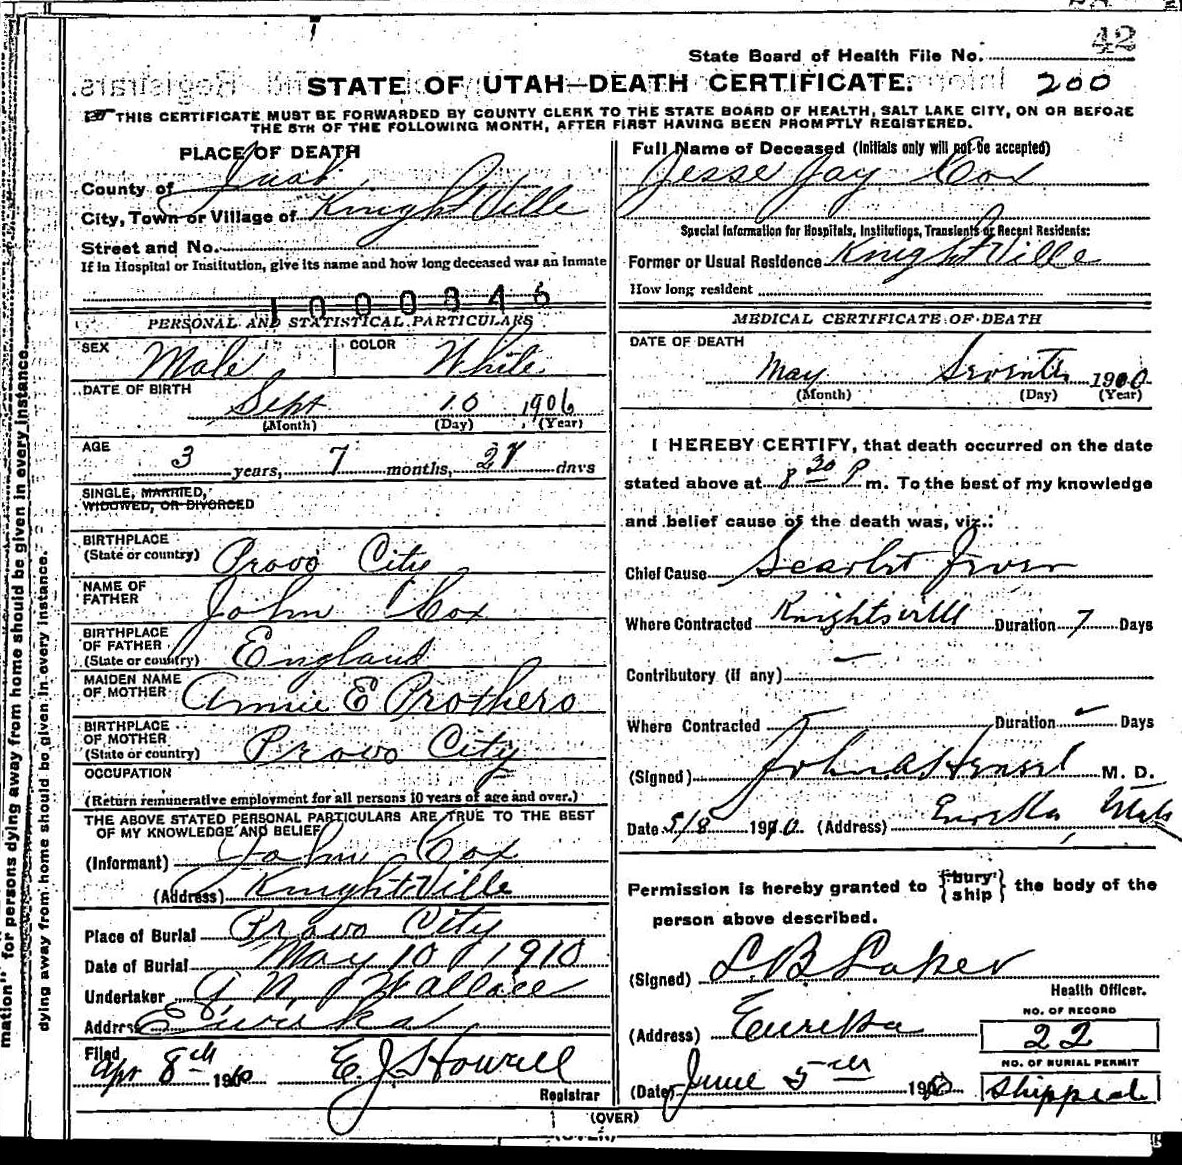 42
State Board of Health File No.
STATE OF UTAH—DEATH CERTIFICATE. 200
THIS CERTIFICATE MUST BE FORWARDED BY COUNTY CLERK TO THE STATE BOARD OF HEALTH, SALT LAKE CITY, ON OR BEFORE
THE 5TH OF THE FOLLOWING MONTH, AFTER FIRST HAVING BEEN PROMPTLY REGISTERED.
PLACE OF DEATH
County of Juab
City, Town or Village of KnightVille
Street and No.
If in Hospital or Institution, give its name and how long deceased was an inmate
1000346
PERSONAL AND STATISTICAL PARTICULARS
SEX Male COLOR White
DATE OF BIRTH
Sept 10 1906
(Month) (Day) (Year)
AGE
3 years, 7 months, 27 days
SINGLE, MARRIED,
WIDOWED, OR DIVORCED
BIRTHPLACE
(State or country) Provo City
NAME OF
FATHER John Cox
BIRTHPLACE
OF FATHER
(State or country) England
MAIDEN NAME
OF MOTHER Annie E Prothero
BIRTHPLACE
OF MOTHER
(State or country) Provo City
OCCUPATION
(Return remunerative employment for all persons 10 years of age and over.)
THE ABOVE STATED PERSONAL PARTICULARS ARE TRUE TO THE BEST
OF MY KNOWLEDGE AND BELIEF
(Informant) John Cox
(Address) KnightVille
Place of Burial Provo City
Date of Burial May 10 1910
Undertaker G. N. Wallace
Address Eureka
Filed
Apr 8th 1910 E. J. Howell
Registrar
Full Name of Deceased (Initials only will not be accepted)
Jesse Jay Cox
Special Information for Hospitals, Institutions, Transients or Recent Residents:
Former or Usual Residence KnightVille
How long resident
MEDICAL CERTIFICATE OF DEATH
DATE OF DEATH
May Seventh 1910
(Month) (Day) (Year)
I HEREBY CERTIFY, that death occurred on the date
stated above at 8 30 P m. To the best of my knowledge
and belief cause of the death was, viz.:
Chief Cause Scarlet Fever
Where Contracted Knightsville Duration 7 Days
Contributory (if any)
Where Contracted Duration Days
(Signed) John A Hensel M. D.
Date 5/8 1910 (Address) Eureka Utah
Permission is hereby granted to {bury
ship} the body of the
person above described.
(Signed) L B Laker
Health Officer.
(Address) Eureka
NO. OF RECORD
22
NO. OF BURIAL PERMIT
(Date) June 5th 1910 Shipped
(OVER)
mation" for persons dying away from home should be given in every instance.
dying away from home should be given in every instance.